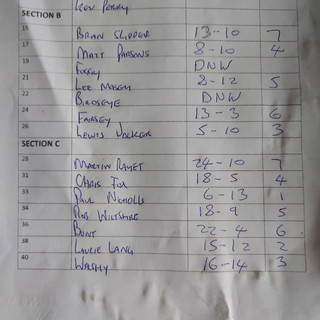 SECTION B
15 BRIAN SLIPPER 13-10 7
17 MATT PARSONS 8-10 4
19 DNW
21 LEE MASEY 8-12 5
22 BIRDSEYE DNW
24 13-3 6
26 LEWIS WALKER 5-10 3
SECTION C
28 MARTIN 24-10 7
31 CHRIS FOX 18-5 4
33 PAUL NICHOLLS 6-13 1
34 ROB WILTSHIRE 18-9 5
36 BUNT 22-4 6
38 LAURIE LANG 15-12 2
40 16-14 3